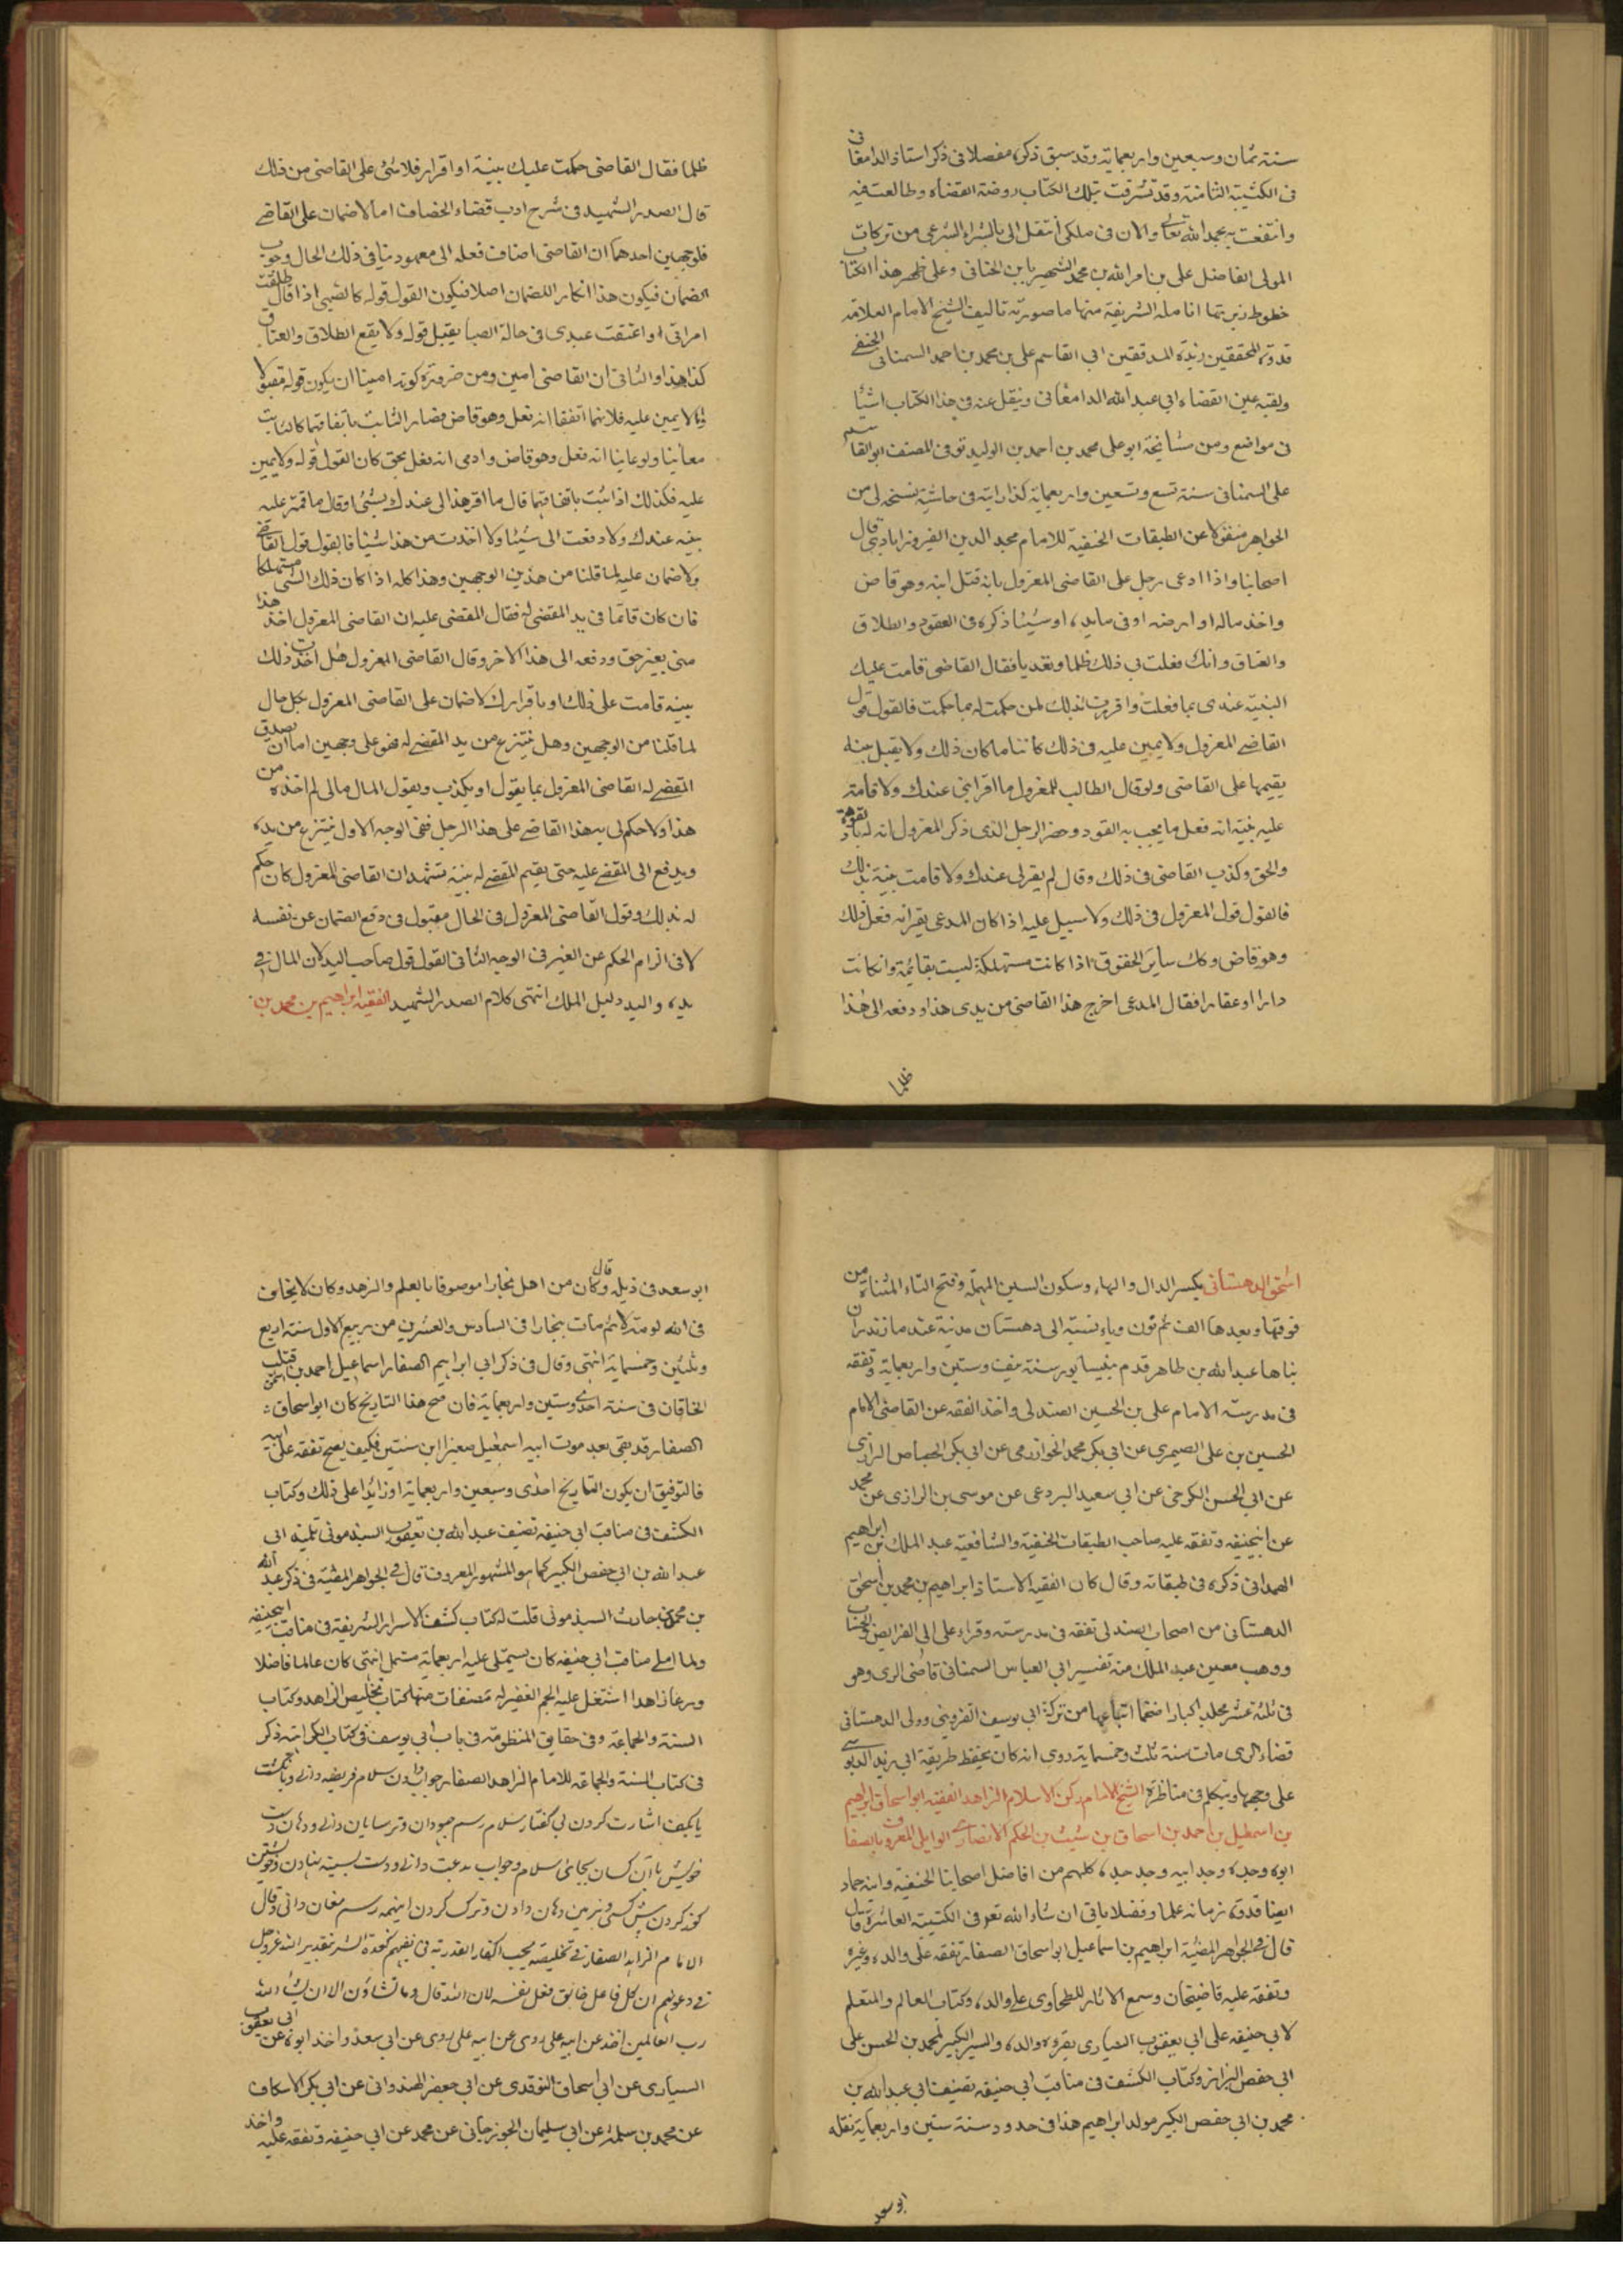 سنة ثمان وسبعين واربعماية وقد سبق ذكره مفصلا في ذكر استاذ الدامغاني
في الكتيبة الثامنة وقد تشرفت بتلك الكتاب روضة القضاة وطالعت فيه
وانتفعت به بحمد الله تعالى والان في ملكي انتقل الي بالشراء الشرعي من تركات
المولى الفاضل علي بن امر الله بن محمد الشهير بابن الحنائي وعلى ظهر هذا الكتاب
خطوط زبرتها انامله الشريفة منها ما صورته تاليف الشيخ الامام العلامة
قدوة المحققين زبدة المدققين ابي القاسم علي بن محمد بن احمد السمناني الحنفي
ولقبه عين القضاء ابي عبد الله الدامغاني وينقل عنه في هذا الكتاب اشيا
في مواضع ومن مشايخه ابو علي محمد بن احمد بن الوليد توفي المصنف ابو القاسم
علي السمناني سنة تسع وتسعين واربعماية كذا رايته في حاشية نسخة لي من
الجواهر منقولا عن الطبقات الحنفية للامام مجد الدين الفيروزابادي قال
اصحابنا واذا ادعى رجل على القاضي المعزول بانه قتل ابنه وهو قاض
واخذ ماله او ارضه او في مايده او شيئا ذكره في العقود والطلاق
والعتاق وانك فعلت بي ذلك ظلما وتعديا فقال القاضي قامت عليك
البينة عندي بما فعلت واقررت بذلك لمن حكمت له بما حكمت فالقول قول
القاضي المعزول ولا يمين عليه في ذلك كائنا ما كان ذلك ولا يقبل بينة
يقيمها على القاضي ولو قال الطالب للمعزول ما اقر ابني عندك ولا قامت
عليه بينة انه فعل ما يجب به القود وحضر الرجل الذي ذكر المعزول انه له باد
والحق وكذب القاضي في ذلك وقال لم يقر لي عندك ولا قامت بينة بذلك
فالقول قول المعزول في ذلك ولا سبيل عليه اذا كان المدعي يقر انه فعل ذلك
وهو قاض وكك ساير الحقوق اذا كانت مستهلكة ليست بقائمة وان كانت
دارا او عقارا فقال المدعي اخرج هذا القاضي من يدي هذا ودفعه الى هذا
ظلما
ظلما فقال القاضي حكمت عليك ببينة او اقرار فلا شئ على القاضي من ذلك
قال الصدر الشهيد في شرح ادب قضاء الخصاف اما لا ضمان على القاضي
فلوجهين احدهما ان القاضي اضاف فعله الى معهود ينافي ذلك الحال وجوب
الضمان فيكون هذا انكارا للضمان اصلا فيكون القول قوله كالصبي اذا قال طلقت
امراتي او اعتقت عبدي في حالة الصبا يقبل قوله ولا يقع الطلاق والعتاق
كذا هذا والثاني ان القاضي امين ومن ضرورة كونه امينا ان يكون قوله مقبولا
ولا يمين عليه فلانهما اتفقا انه فعل وهو قاض فصار الثابت باتفاقهما كالثابت
معاينا ولو عاينا انه فعل وهو قاض وادعى انه فعل بحق كان القول قوله ولا يمين
عليه فكذلك اذا ثبت باتفاقهما قال ما اقر هذا لي عندك بشئ او قال ما قامت عليه
بينة عندك ولا دفعت الي شيئا ولا اخذت من هذا شيئا فالقول قول القاضي
ولا ضمان عليه لما قلنا من هذين الوجهين وهذا كله اذا كان ذلك الشئ مستهلكا
فان كان قائما في يد المقضي له فقال المقضي عليه ان القاضي المعزول اخذ هذا
مني بغير حق ودفعه الى هذا الاخر وقال القاضي المعزول هل اخذت ذلك
ببينة قامت على ذلك او باقرارك لا ضمان على القاضي المعزول بكل حال
لما قلنا من الوجهين وهل ينتزع من يد المقضي له فهو على وجهين اما ان يصدق
المقضي له القاضي المعزول بما يقول او يكذب ويقول المال مالي لم اخذه من
هذا ولا حكم لي به هذا القاضي على هذا الرجل ففي الوجه الاول ينتزع من يده
ويدفع الى المقضي عليه حتى يقيم المقضي له بينة تشهد ان القاضي المعزول كان حكم
له بذلك وقول القاضي المعزول في الحال مقبول في دفع الضمان عن نفسه
لا في الزام الحكم عن الغير في الوجه الثاني القول قول صاحب اليد لان المال في
يده واليد دليل الملك انتهى كلام الصدر الشهيد الفقيه ابراهيم بن محمد بن
اسحق الدهستاني بكسر الدال والهاء وسكون السين المهملة وفتح التاء المثناة من
فوقها وبعدها الف ثم نون وياء نسبة الى دهستان مدينة عند مازندران
بناها عبد الله بن طاهر قدم نيسابور سنة نيف وستين واربعماية وتفقه
في مدرسة الامام علي بن الحسين الصندلي واخذ الفقه عن القاضي الامام
الحسين بن علي الصيمري عن ابي بكر محمد الخوارزمي عن ابي بكر الجصاص الرازي
عن ابي الحسن الكرخي عن ابي سعيد البردعي عن موسى بن الرازي عن محمد
عن ابي حنيفه وتفقه عليه صاحب الطبقات الحنفية والشافعية عبد الملك بن ابراهيم
الهمداني ذكره في طبقاته وقال كان الفقيه الاستاذ ابراهيم بن محمد بن اسحق
الدهستاني من اصحاب الصندلي تفقه في مدرسته وقراء على ابي الفرايض والحساب
ووهب معين عبد الملك منه تفسير ابي العباس السمناني قاضي الري وهو
في ثلثة عشر مجلدا كبارا ضخما ابتاعها من تركة ابي يوسف القزويني وولى الدهستاني
قضاء الري مات سنة ثلث وخمسماية روى انه كان يحفظ طريقة ابي زيد الدبوسي
على وجهها ويتكلم في مناظرة الشيخ الامام ركن الاسلام الزاهد الفقيه ابو اسحاق ابراهيم
بن اسمعيل بن احمد بن اسحاق بن شيث بن الحكم الانصاري الوايلي المعروف بالصفار
ابوه وجده وجد ابيه وجد جده كلهم من افاضل اصحابنا الحنفية وابنه حماد
ايضا قدوة زمانه علما وفضلا ياتي ان شاء الله تعو في الكتيبة العاشرة
قال في الجواهر المضيئة ابراهيم بن اسماعيل ابو اسحاق الصفار تفقه على والده وغيره
وتفقه عليه قاضيخان وسمع الاثار للطحاوي على والده وكتاب العالم والمتعلم
لابي حنيفه على ابي يعقوب السياري بقرءة والده والسير الكبير لمحمد بن الحسن على
ابي حفص البزاز وكتاب الكشف في مناقب ابي حنيفه تصنيف ابي عبد الله بن
محمد بن ابي حفص الكبير مولد ابراهيم هذا في حدود سنة ستين واربعماية نقله
ابو سعد
ابو سعد في ذيله وقال كان من اهل بخارا موصوفا بالعلم والزهد وكان لا يخاف
في الله لومة لائم مات ببخارا في السادس والعشرين من ربيع الاول سنة اربع
وثلثين وخمسماية انتهى وقال في ذكر ابي ابراهيم الصفار اسماعيل احمد بن قتله
الخاقان في سنة احدى وستين واربعماية فان صح هذا التاريخ كان ابو اسحاق
الصفار قد بقي بعد موت ابيه اسمعيل صغيرا ابن سنتين فكيف يصح تفقه على ابيه
فالتوفيق ان يكون التاريخ احدى وسبعين واربعماية او زايدا على ذلك وكتاب
الكشف في مناقب ابي حنيفه تصنيف عبد الله بن يعقوب السبذموني تلميذ ابي
عبد الله بن ابي حفص الكبير كما هو المشهور المعروف قال في الجواهر المضيئة في ذكر عبد الله
بن محمد بن حارث السبذموني قلت له كتاب كشف الاسرار الشريفة في مناقب ابي حنيفه
ولما املى مناقب ابي حنيفه كان يستملي عليه اربعماية مستمل انتهى كان عالما فاضلا
ورعا زاهدا اشتغل عليه الجم الغفير له مصنفات منها كتاب تلخيص الزاهد وكتاب
السنة والجماعة وفي حقايق المنظومة في باب ابي يوسف في كتاب الكراهية ذكر
في كتاب السنة والجماعة للامام الزاهد الصفار جواب دادن سلام فريضه داني وبانگشت
يا بكف اشارت كردن بي گفتار سلام رسم جهودان وترسايان داني ودهان ودست
خويش با آن كسان بجاي سلام وجواب بدعت داني ودست بسينه نهادن وخويشتن
كوز كردن پيش كسى وزمين دهان دادن وترك كردن اينهمه رسم مغان داني وقال
الامام الزاهد الصفار في تلخيصه يجب اكفار القدرية في نفيهم كون الشر بتقدير الله عز وجل
في دعويهم ان كل فاعل خالق فعل نفسه لان الله قال وما تشاؤن الا ان يشاء الله
رب العالمين اخذ عن ابيه علي روى عن ابيه علي روى عن ابي سعد واخذ ابوه عن ابي يعقوب
السياري عن ابي اسحاق النوقدي عن ابي جعفر الهندواني عن ابي بكر الاسكاف
عن محمد بن سلمة عن ابي سليمان الجوزجاني عن محمد عن ابي حنيفه وتفقه عليه واخذ